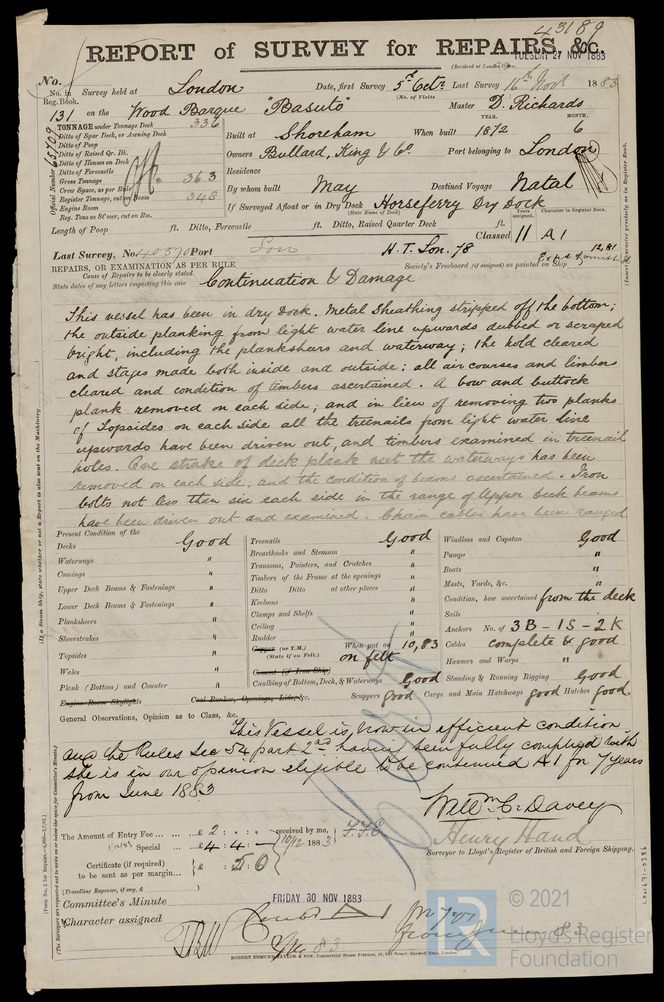 43189
REPORT of SURVEY for REPAIRS, &c.
(Received at London Office,
TUESDAY 27 NOV 1883
No.
No. in Reg. Book. Survey held at London Date, first Survey 5th Octr. Last Survey 16th Novr. 1883
(No. of Visits
131 on the Wood Barque "Basuto" Master D. Richards
TONNAGE under Tonnage Deck 336
Ditto of Spar Deck, or Awning Deck
Ditto of Poop
Ditto of Raised Qr. Dk.
Ditto of Houses on Deck
Ditto of Forecastle
Gross Tonnage 363
Crew Space, as per Rule
Register Tonnage, cut on Beam 348
Engine Room
Reg. Tons as St'mer, cut on Bm.
Official Number 65709
Built at Shoreham When built YEAR. 1872 MONTH. 6
Owners Bullard, King & Co. Port belonging to London
Residence
By whom built May Destined Voyage Natal
If Surveyed Afloat or in Dry Dock Horseferry Dry Dock
(State Name of Dock)
Length of Poop ft. Ditto, Forecastle ft. Ditto, Raised Quarter Deck ft.
Years assigned. Character in Register Book.
Classed 11 A1
12,81
Last Survey, No. 40570 Port Lon H.T. Lon. 78
REPAIRS, OR EXAMINATION AS PER RULE
Society's Freeboard (if assigned) as painted on Ship
Cause of Repairs to be clearly stated.
State dates of any letters respecting this case
Continuation & Damage.
This vessel has been in dry dock. Metal Sheathing stripped off the bottom;
the outside planking from light water line upwards dubbed or scraped
bright, including the planksheers and waterway; the hold cleared
and stages made both inside and outside: all air courses and limbers
cleared and condition of timbers ascertained. A bow and buttock
plank removed on each side; and in lieu of removing two planks
of Topsides on each side all the treenails from light water line
upwards have been driven out, and timbers examined in treenail
holes. One strake of deck plank next the waterways has been
removed on each side, and the condition of beams ascertained. Iron
bolts not less than six each side in the range of Upper Deck beams
have been driven out and examined. Chain cables have been ranged
Present Condition of the
Decks Good
Waterways "
Comings "
Upper Deck Beams & Fastenings "
Lower Deck Beams & Fastenings "
Planksheers "
Sheerstrakes "
Topsides "
Wales "
Plank (Bottom) and Counter "
Engine Room Skylights Coal Bunker, Openings, Lids, &c.
Treenails Good
Breasthooks and Stemson "
Transoms, Pointers, and Crutches "
Timbers of the Frame at the openings "
Ditto Ditto at other places "
Keelsons "
Clamps and Shelfs "
Ceiling "
Rudder "
Copper (or Y.M.) When put on 10,83
(State if on Felt.) on felt
Cement (if Iron Ship)
Caulking of Bottom, Deck, & Waterways Good
Scuppers good Cargo and Main Hatchways good Hatches good
Windlass and Capstan Good
Pumps "
Boats "
Masts, Yards, &c. "
Condition, how ascertained from the deck
Sails
Anchors No. of 3B - 1S - 2K
Cables complete & good
Hawsers and Warps "
Standing & Running Rigging Good
General Observations, Opinion as to Class, &c.
This Vessel is now in efficient condition
and the Rules Sec 54 part 2nd having been fully complied with
she is in our opinion eligible to be continued A1 for 7 years
from June 1883
Willm. C. Davey
Henry Hand
Surveyor to Lloyd's Register of British and Foreign Shipping.
The Amount of Entry Fee £ 2 : : received by me,
Special £ 4 : 4 : 1883
Certificate (if required) to be sent as per margin £ : 5 : 0
(Travelling Expenses, if any, £ )
Committee's Minute FRIDAY 30 NOV 1883
Character assigned Contd A 1 for 7 yrs
from June 83
ROBERT EDMUND TAYLOR & SON, Commercial Steam Printers, 19, Old Street, Goswell Road, London.
© 2021
Lloyd's Register
Foundation